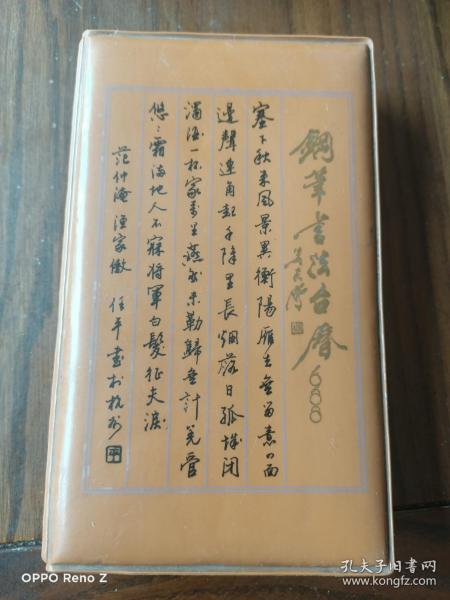 鋼筆書法台曆
塞下秋来風景異衡陽雁去無留意四面
邊聲連角起千障里長烟落日孤城闭
濁酒一杯家萬里燕然未勒歸無計羌管
悠〻霜满地人不寐將軍白髮征夫淚
范仲淹漁家傲 任平書於杭州
OPPO Reno Z
孔夫子旧书网
www.kongfz.com